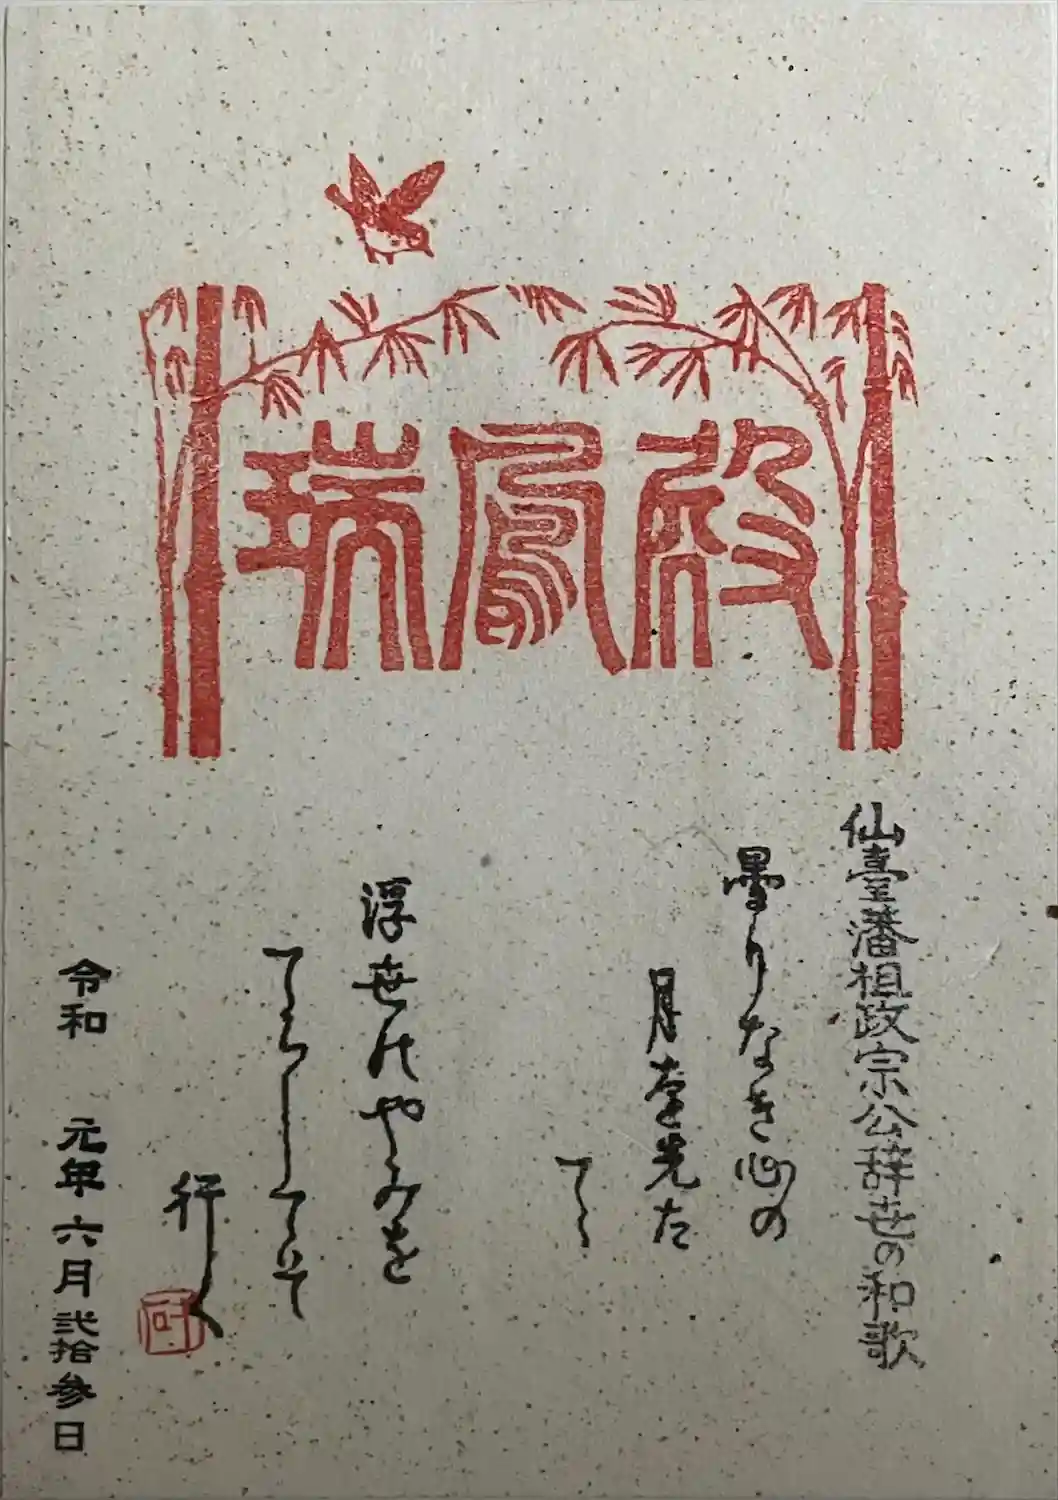 瑞鳳殿
仙臺藩祖政宗公辞世の和歌
曇りなき心の
月を先た
てゝ
浮世のやみを
てらしてそ
行く
令和 元年六月弐拾参日